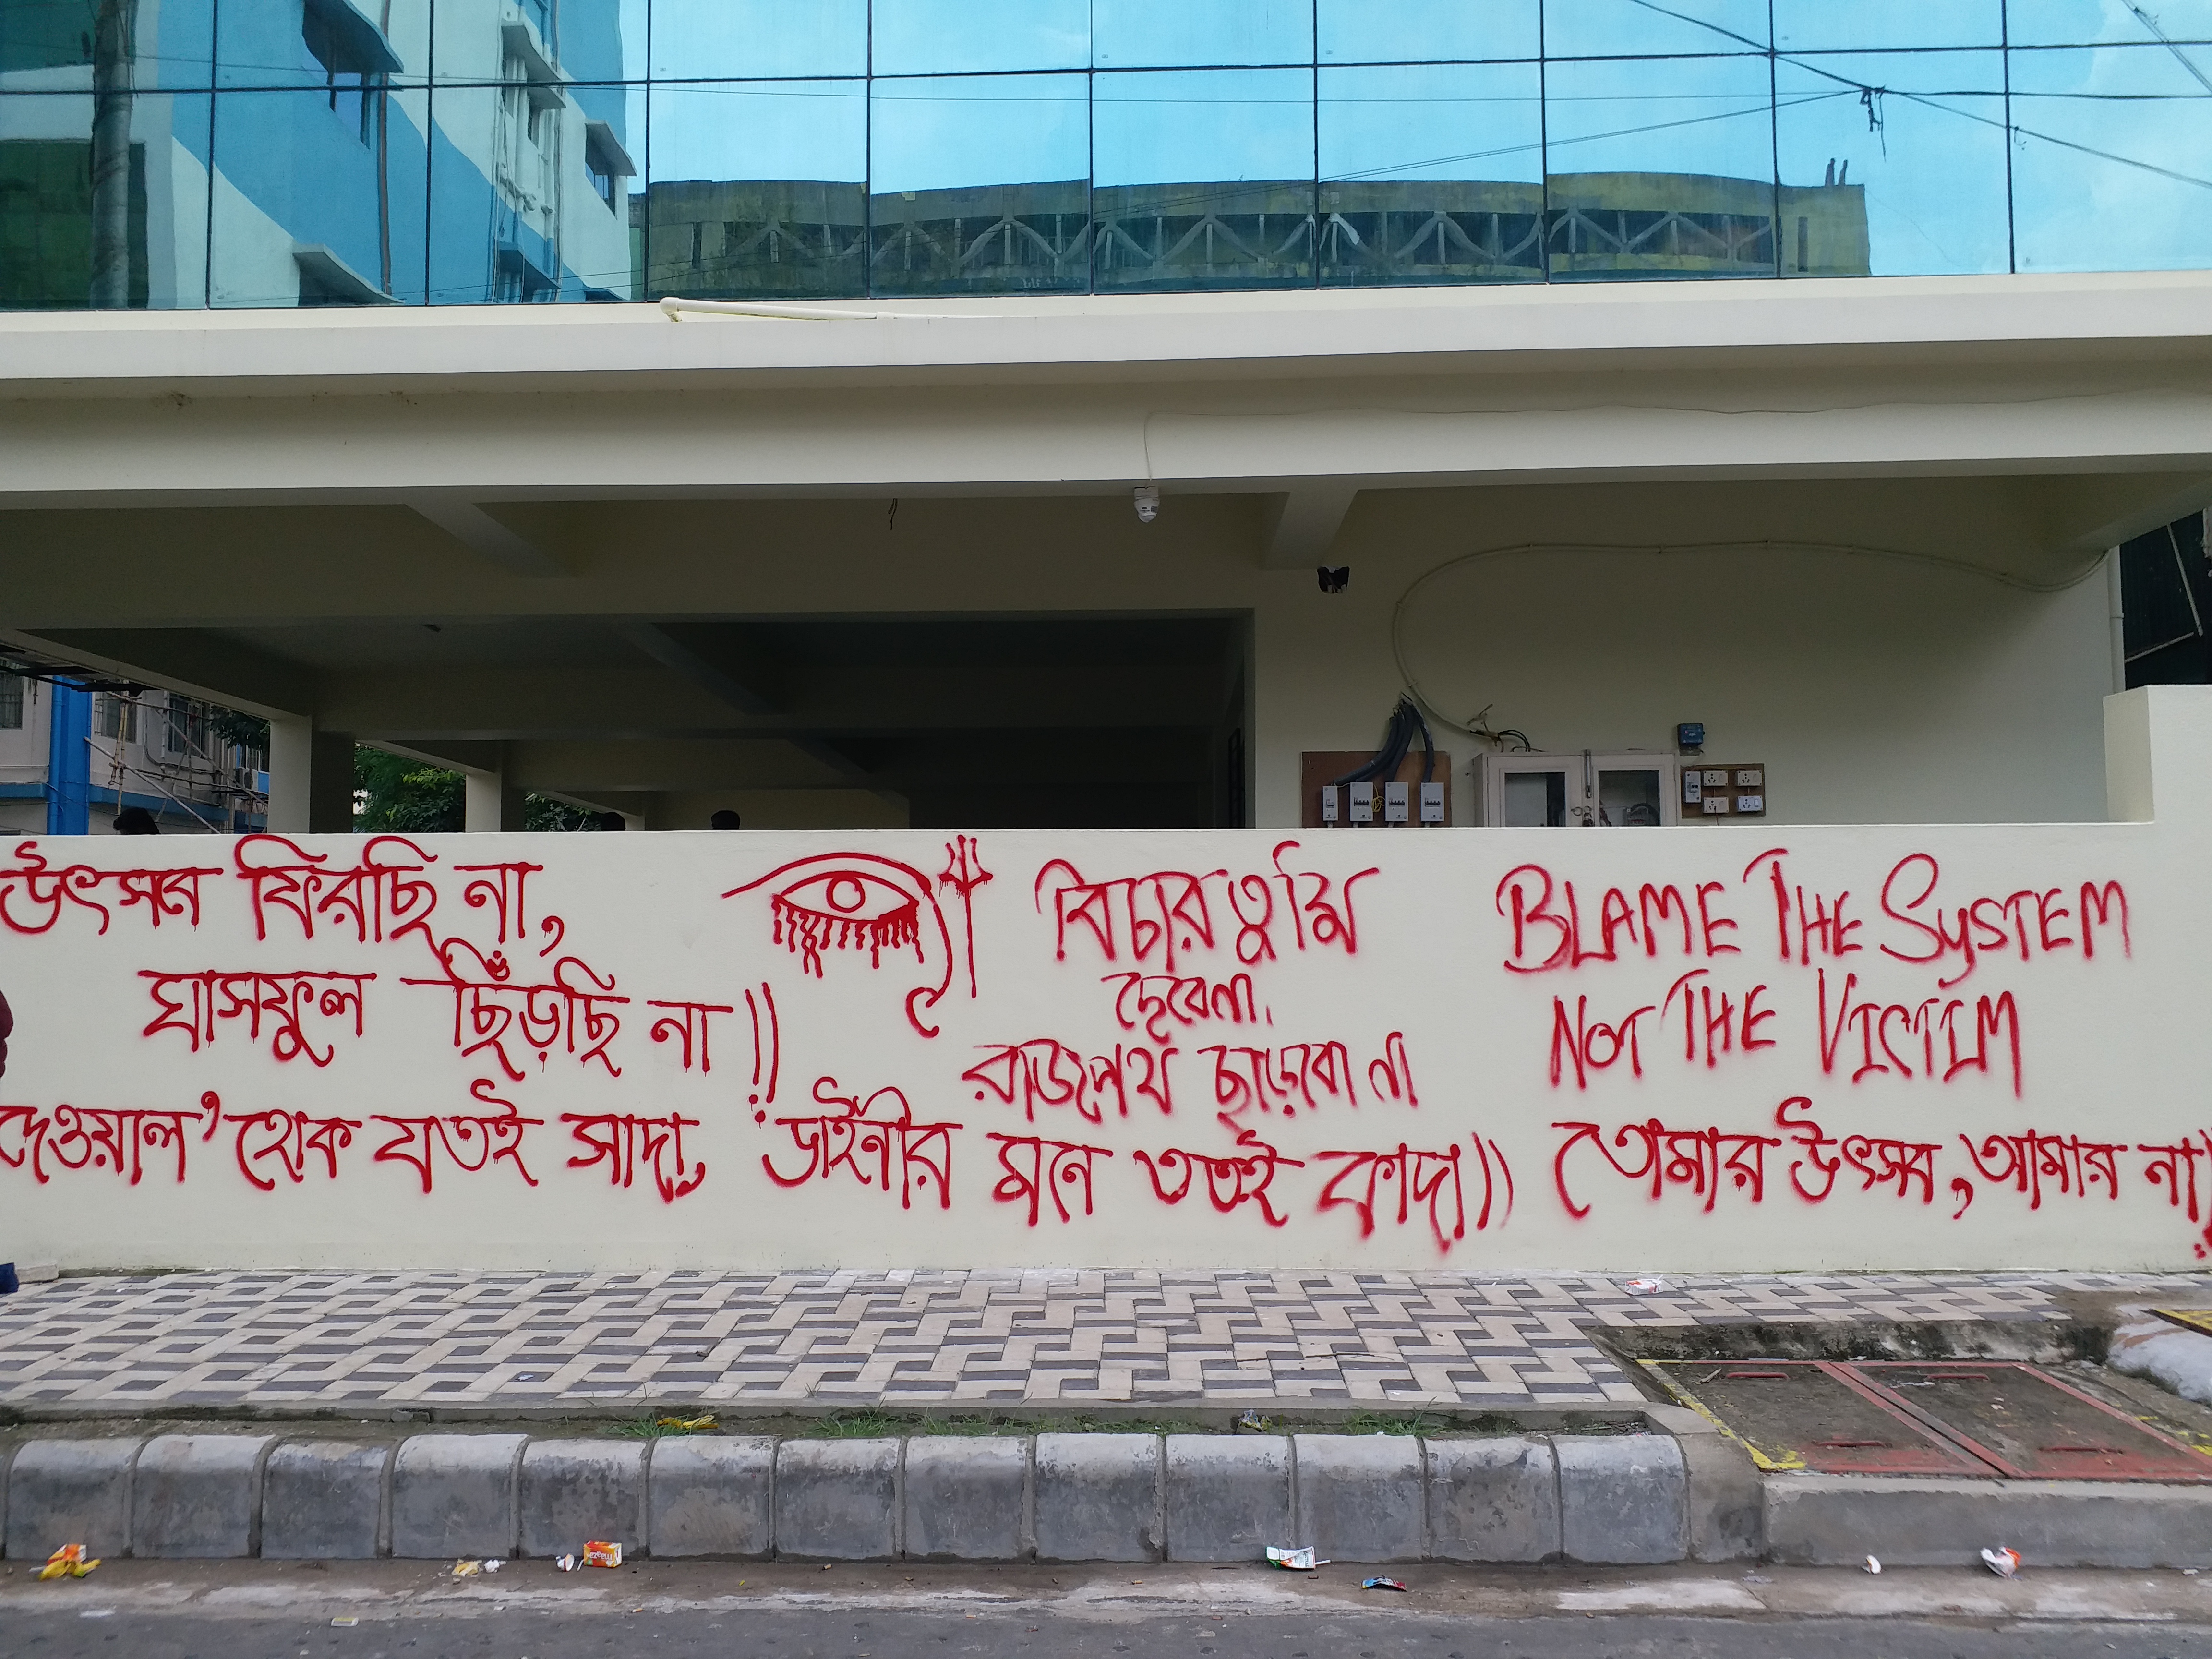 উৎসব ফিরছি না,
ঘাসফুল ছিঁড়ছি না!!
বিচার তুমি
দেবেনা,
রাজপথ ছাড়বো না
BLAME THE SYSTEM
NOT THE VICTIM
দেওয়াল' হোক যতই সাদা, ডাইনীর মনে ততই কাদা))
(তোমার উৎসব, আমার না!